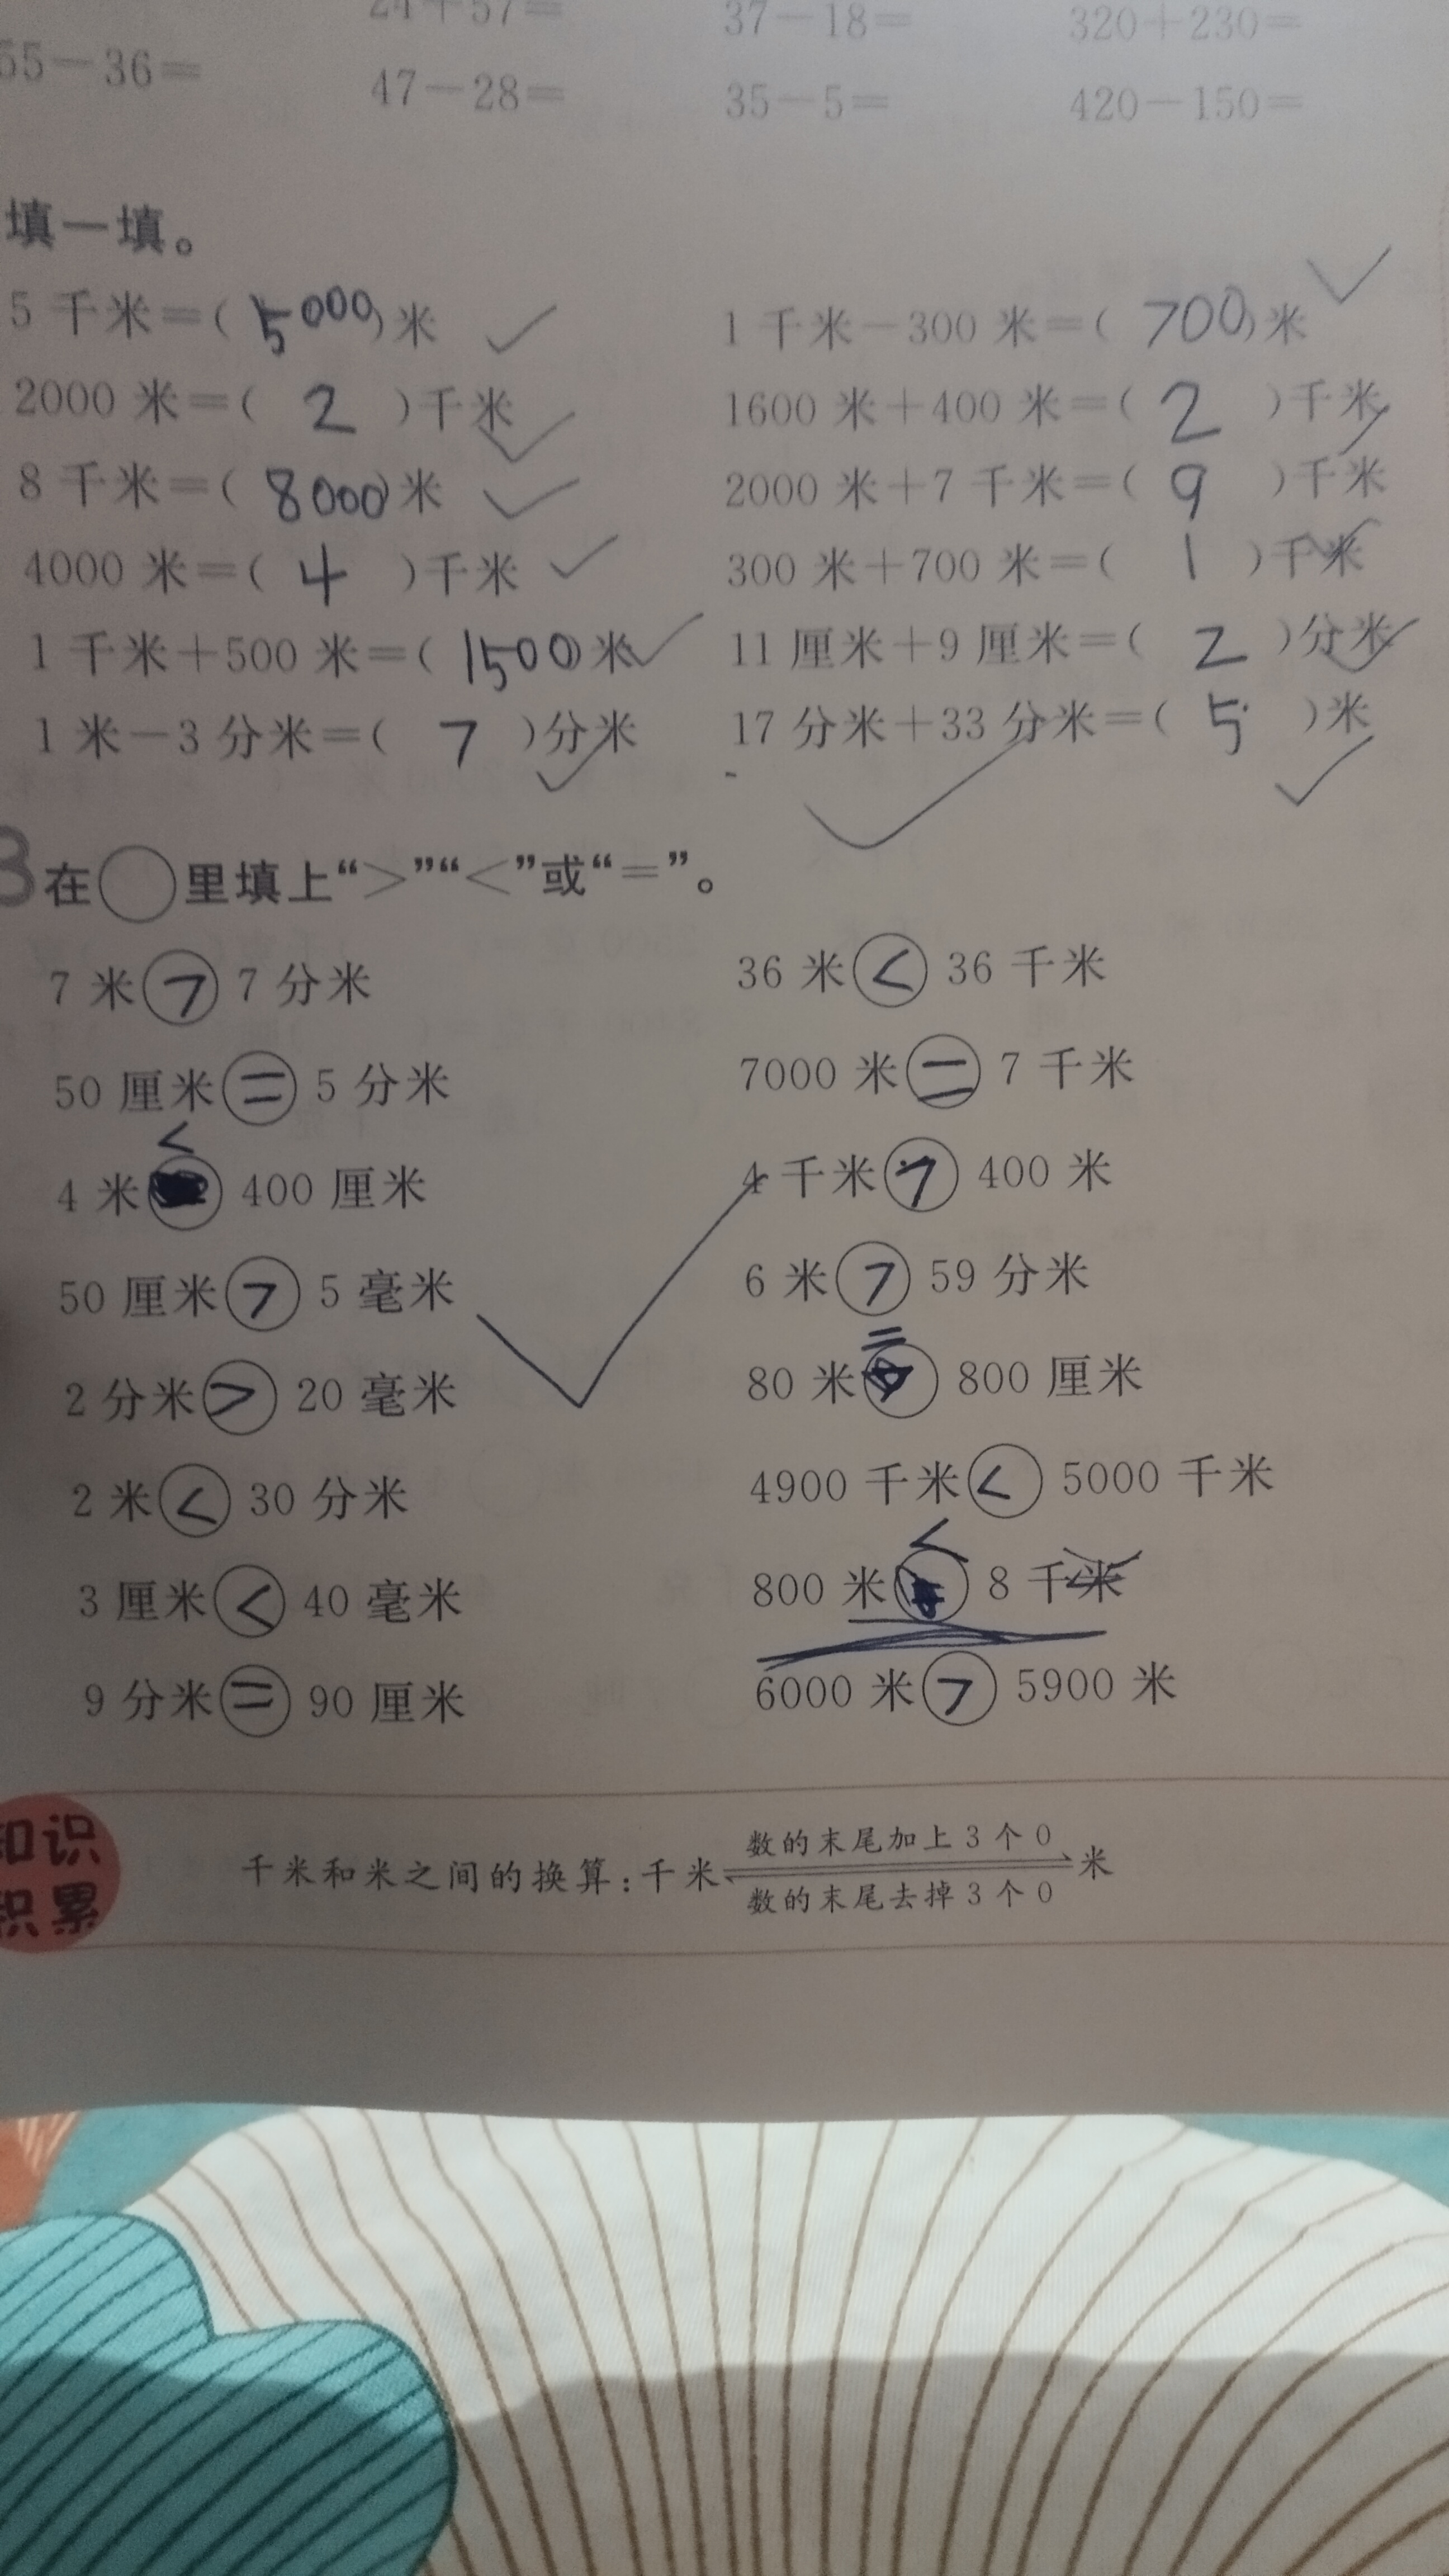 24+57=	37-18=	320+230=
55-36=	47-28=	35-5=	420-150=
填一填。
5 千米=( 5000 )米	1 千米-300 米=( 700 )米
2000 米=( 2 )千米	1600 米+400 米=( 2 )千米
8 千米=( 8000 )米	2000 米+7 千米=( 9 )千米
4000 米=( 4 )千米	300 米+700 米=( 1 )千米
1 千米+500 米=( 1500 )米	11 厘米+9 厘米=( 2 )分米
1 米-3 分米=( 7 )分米	17 分米+33 分米=( 5 )米
3 在○里填上“>”“<”或“=”。
7 米 > 7 分米	36 米 < 36 千米
50 厘米 = 5 分米	7000 米 = 7 千米
4 米 < 400 厘米	4 千米 > 400 米
50 厘米 > 5 毫米	6 米 > 59 分米
2 分米 > 20 毫米	80 米 = 800 厘米
2 米 < 30 分米	4900 千米 < 5000 千米
3 厘米 < 40 毫米	800 米 < 8 千米
9 分米 = 90 厘米	6000 米 > 5900 米
知识
积累
数的末尾加上 3 个 0
千米和米之间的换算:千米 米
数的末尾去掉 3 个 0